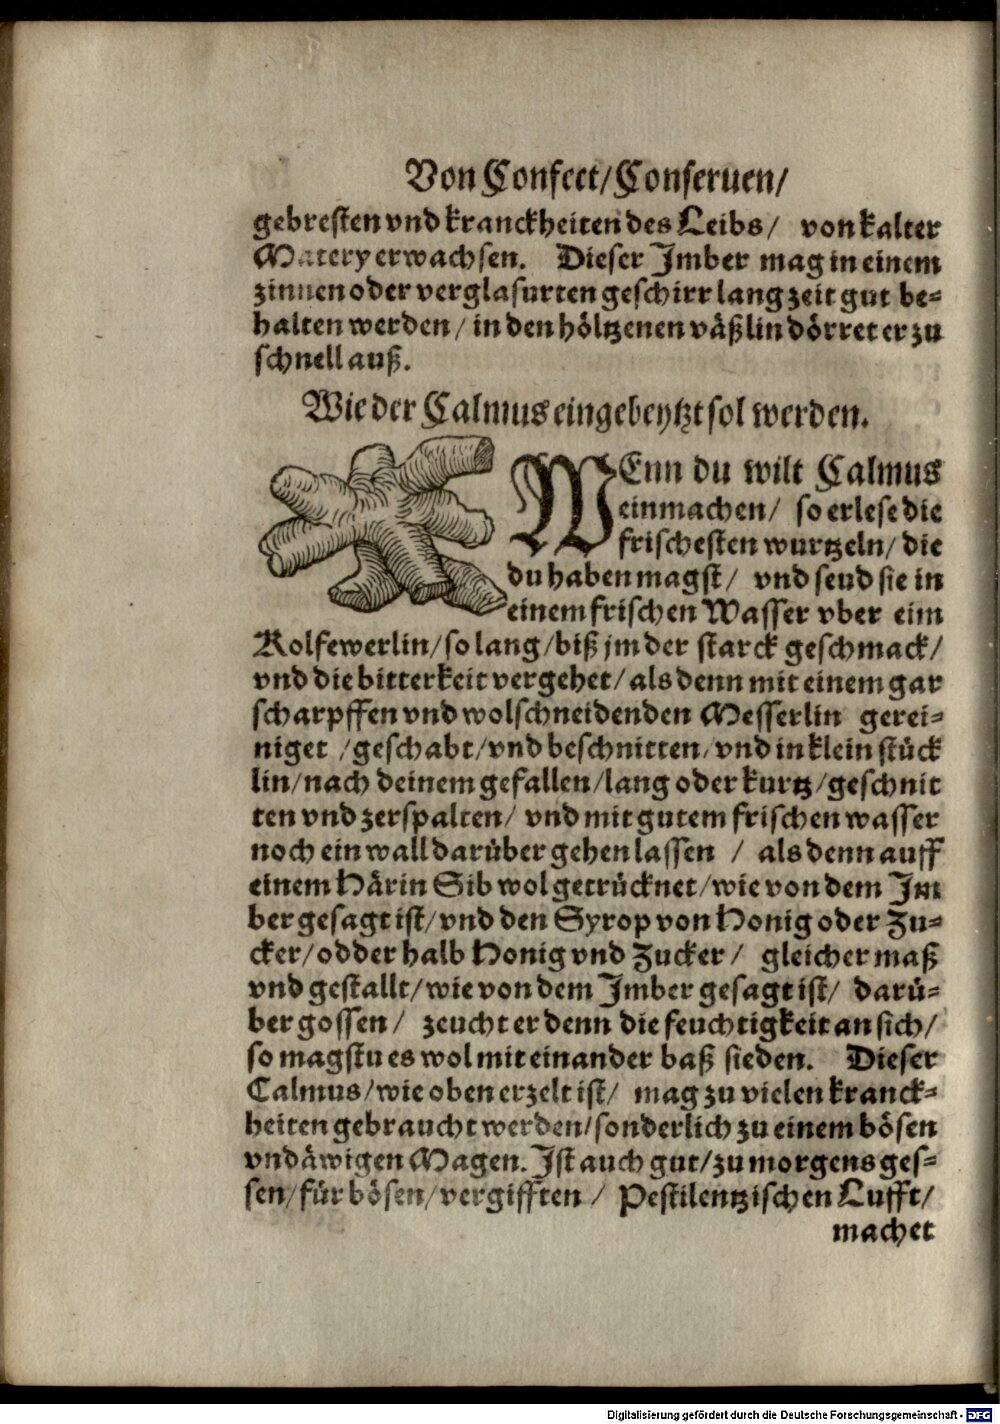 Von Confect/Conseruen/
gebresten vnd kranckheiten des Leibs/ von kalter
Matery erwachsen. Dieser Imber mag in einem
zinnen oder verglasurten geschirr lang zeit gut be=
halten werden/ in den höltzenen väßlin dörret er zu
schnell auß.
Wie der Calmus eingebeytzt sol werden.
WEnn du wilt Calmus
einmachen/ so erlese die
frischesten wurtzeln/ die
du haben magst/ vnd seud sie in
einem frischen Wasser vber eim
Kolfewerlin/so lang/biß jm der starck geschmack/
vnd die bitterkeit vergehet/ als denn mit einem gar
scharpffen vnd wolschneidenden Messerlin gerei=
niget /geschabt/vnd beschnitten/vnd in klein stück
lin/nach deinem gefallen/lang oder kurtz/geschnit
ten vnd zerspalten/ vnd mit gutem frischen wasser
noch ein wall darüber gehen lassen / als denn auff
einem Härin Sib wol getrücknet/wie von dem Im
ber gesagt ist/vnd den Syrop von Honig oder Zu=
cker/odder halb Honig vnd Zucker/ gleicher maß
vnd gestallt/wie von dem Imber gesagt ist/ darü=
ber gossen/ zeucht er denn die feuchtigkeit an sich/
so magstu es wol mit einander baß sieden. Dieser
Calmus/wie oben erzelt ist/ mag zu vielen kranck=
heiten gebraucht werden/sonderlich zu einem bösen
vndäwigen Magen. Ist auch gut/zu morgens ges=
sen/für bösen/vergifften / Pestilentzischen Lufft/
machet
Digitalisierung gefördert durch die Deutsche Forschungsgemeinschaft - DFG